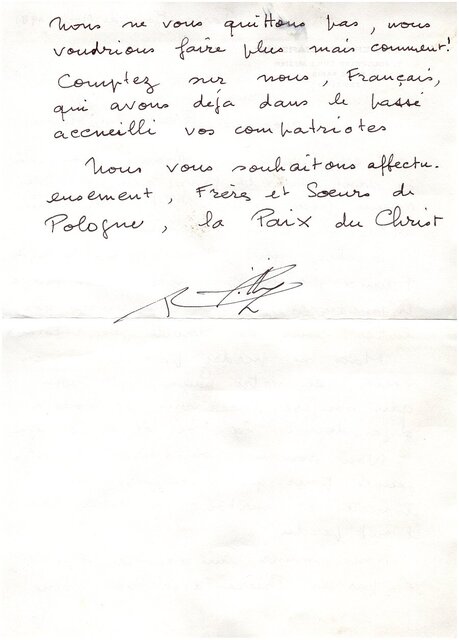 Nous ne vous quittons pas, nous
voudrions faire plus mais comment!
Comptez sur nous, Français,
qui avons déja dans le passé
accueilli vos compatriotes
Nous vous souhaitons affectu-
eusement, Frères et Soeurs de
Pologne, la Paix du Christ